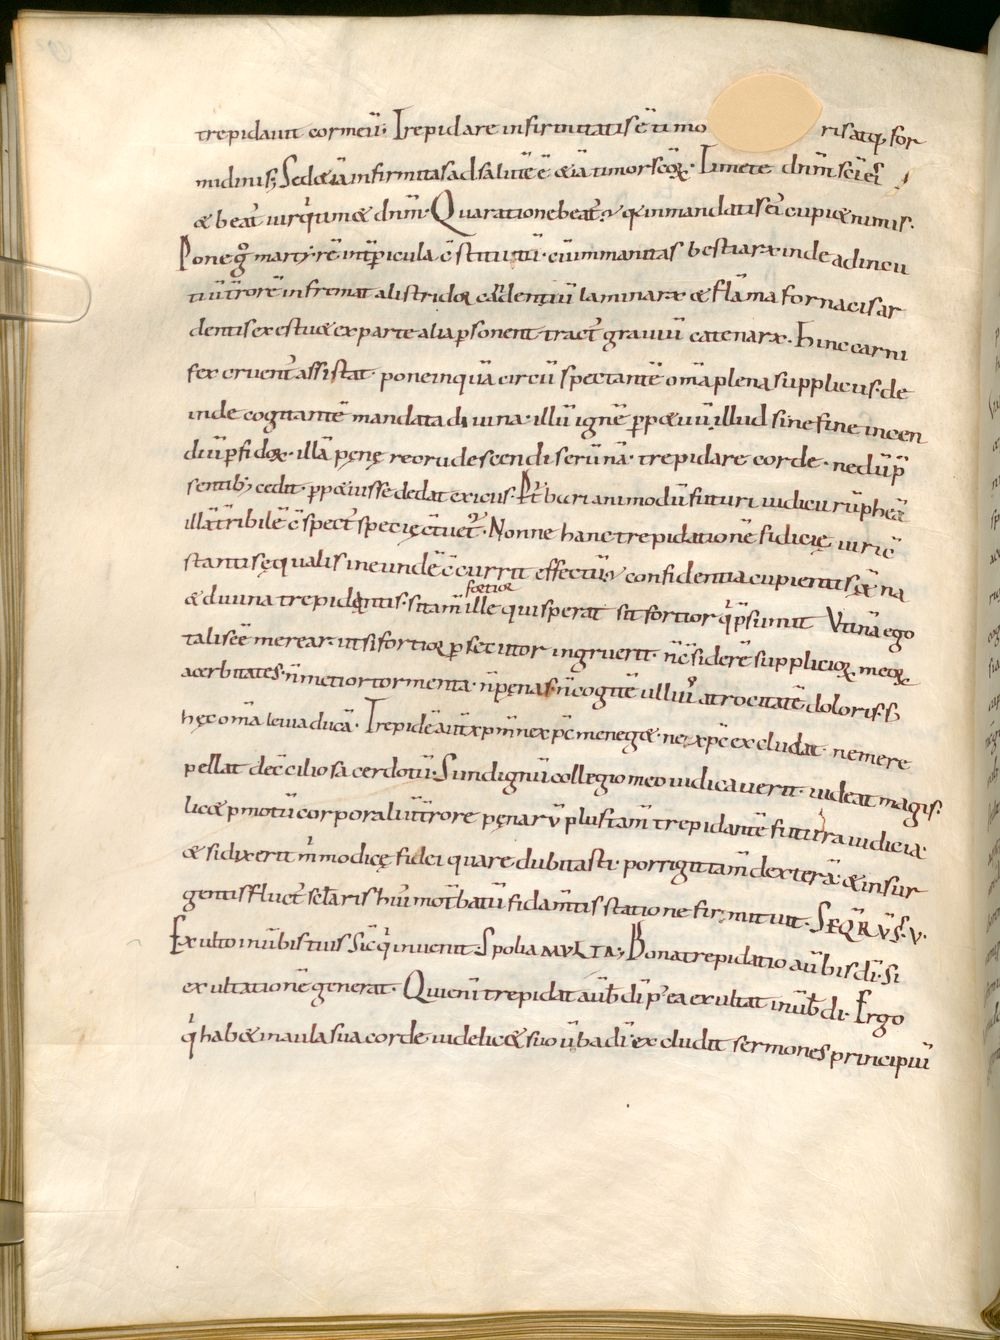 trepidauit cor meū; Trepidare infirmitatis ē timo risatq; for
midinis; Sed &iā infirmitas ad salutē ē &iā timor scōꝝ. Timete dnm̄ sc̄i ei'
& beat' uir q̓ tim& dnm̄. Qua ratione beat'; q̓ in mandatis ei' cupi& nimis.
Pone g̊ martyrē int̄ pericula c̄stitutū. cū immanitas bestiarꝝ inde ad incu
tiūt̄rorē infremat alis stridor cādentiū laminarꝝ & flāma fornacis ar
dentis exestu& ex parte alia p̱sonent tract' grauiū catenarꝝ. Hinc carni
fex cruent' assistat. pone inquā circū spectantē om̄a plena suppliciis. de
inde cogitantē mandata diuina. illū ignē p̱p&uū. illud sine fine incen
diū p̱fidoꝝ. illā pęnę recrudescendis erūnā. trepidare corde. ne dū p̄
sentib; cedit. p̱p&uis se dedat exiciis. Pt̄bari animo dū futuri iudicii rūpheā
illā t̄ribilē c̄spect' specię c̄tuet'. Nonne hanc trepidationē fidicię uiri c̄
stantis ęqualis in eundē c̄currit effectū; confidentia cupientis ęt̄na
& diuina trepidantis. sitam̄ fortior ille qui sperat sit fortior q̓ p̱sumit Vtinā ego
talis eē merear. ut si fortior p̱secutor ingruerit. n̄ c̄siderē supplicioꝝ meoꝝ
acerbitates. n̄ metior tormenta. n̄ pęnas. n̄ cogitē ulliu' atrocitatē doloris. s;
hęc om̄a leuia ducā. Trepidē aūt xp̄m n̄e xp̄c me neg&. ne xp̄c excludat ne me re
pellat de c̄cilio sacerdotū. S indignū collegio meo iudicauerit. uideat magis.
lic& p̱motū corporaliū t̄rore pęnarū plus tam̄ trepidantē futura iudicia.
& si dixerit m̄ modicę fidei quare dubitasti. porrigit tam̄ dexterā. & insur
gentis fluct' sclaris hui' mot' batū fidam̄tis statione firmiuit. SEQR̄ VS̄. V.
Exulto in ūbis tuis sic q̓ inuenit. Spolia MVLTA; Bona trepidatio a ūbis dī. si
exultationē generat. Qui enī trepidat a ūb dī p' ea exultat in ūb dī. Ergo
q̓ hab& in aula sua corde uidelic& suo ūba dī. excludit sermones principiū